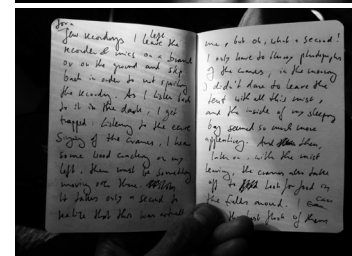 For a
few recordings I left the
recorder & mics on a branch
or on the ground and step
back in order to not spoil
the recording. As I listen back
to it in the dark, I get
trapped. Listening to the eerie
Singing of the cranes, I hear
some wood cracking on my
left. there must be something
moving over there.
It takes only a second to
realize that this was actually
me, but oh, what a second!
I only have so many photographs
of the cranes, in the morning
I didn't dare to leave the
tent with all this mist,
and the inside of my sleeping
bag seemed so much more
appealing. And then,
later on, with the mist
leaving, the cranes also take
off to look for food on
the fields around. I can
the last flock of